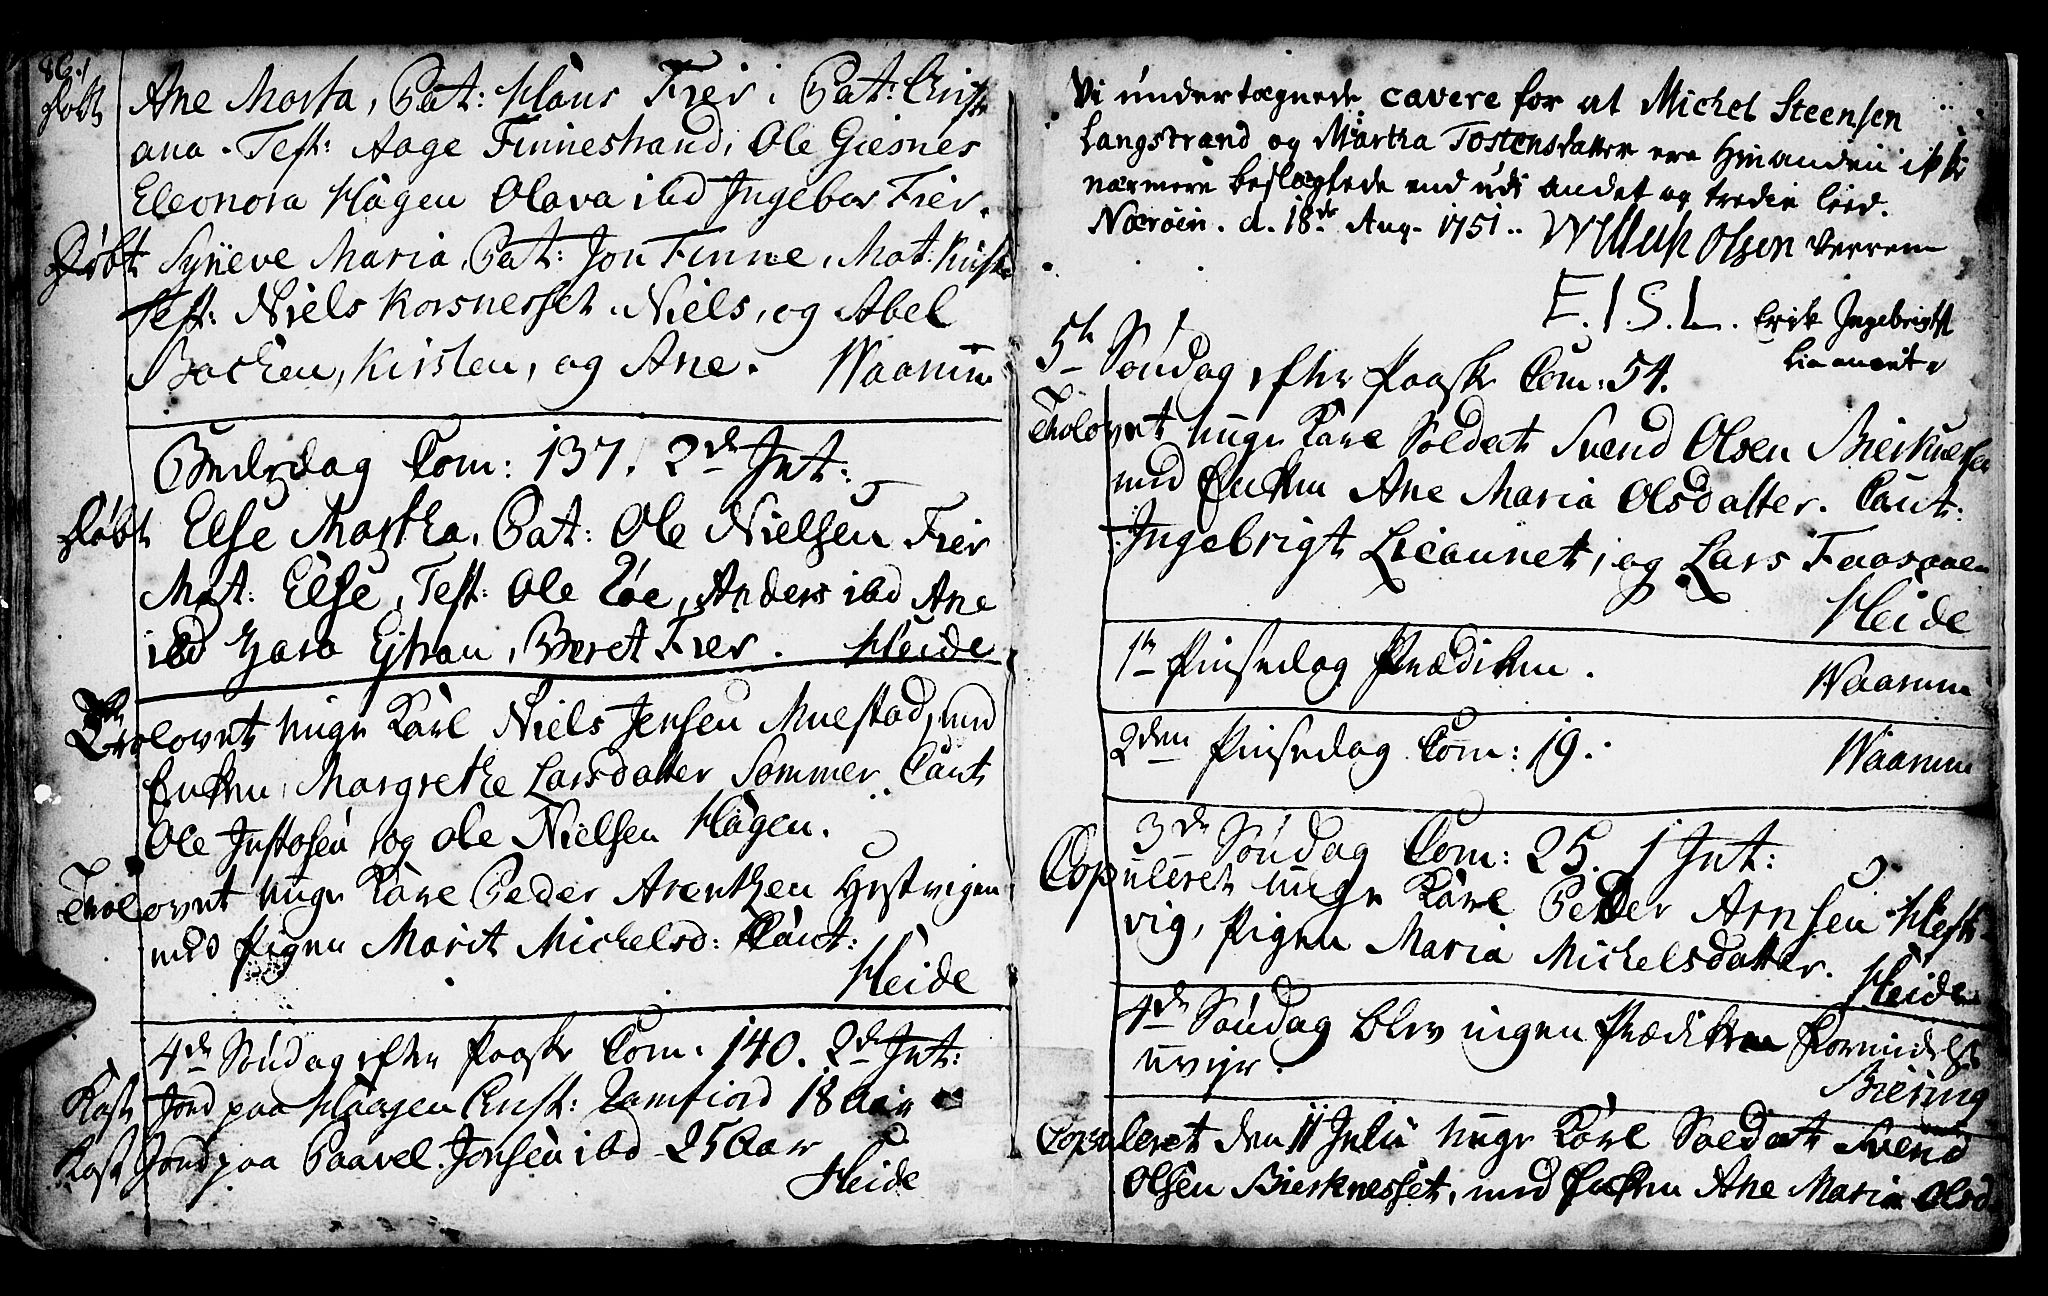 86.
Døbt Ane Marta, Pat: Hans Fier, Pat: Christi
ana. Test: Aage Finnestrand, Ole Giesnes
Eleonora Hagen Olava ibd Ingebor Fier.
Døbt Syneve Maria, Pat: Jon Finne, Mat: Kirst:
Test: Niels Korsnesset, Niels, og Abel
Bachen, Kirsten, og Ane. Waarum
Bededag Com: 137. 2de Int:
Døbt Else Martha, Pat: Ole Nielsen Fier
Mat: Else, Test: Ole Røe, Anders ibd Ane
ibd Hara Ejtran, Beret Fier. Heide
Trolovet unge Karl Niels Jensen Muestad, med
Enken, Margrethe Larsdatter Sommer. Caut
Ole Justosen og Ole Nielsen Hagen.
Trolovet unge Karl Peder Arentzen Hestvigen
med Pigen Marit Michelsd: Caut:
Heide
4de Søndag efter Paaske Com. 140. 2de Int:
Kast Jord paa Haagen Christ: Ramfiord 18 Aar
Kast Jord paa Paavel Jonsen ibd 25 Aar
Heide
Vi undertegnede cavere for at Michel Steensen
Langstrand og Martha Tostensdatter ere Hinanden ikke
nærmere beslægtede end udi andet og tredie leed.
Nærøen. d. 18de Aug. 1751.. Willuk Olsen Verrem
E.I.S.L. Erik Ingebrigts
Liaaunet
5te Søndag efter Paaske Com: 54.
Trolovet unge Karl Soldat Svend Olsen Bierknesset
med Enken Ane Maria Olsdatter. Caut:
Ingebrigt Licaunet, og Lars Faasaaen
Heide
1te Pinsedag Prædiken. Waarum
2den Pinsedag Com: 19. Waarum
3de Søndag Com: 25. 1 Int:
Copuleret unge Karl Peder Arnsen Hest-
vig, Pigen Maria Michelsdatter. Heide
4de Søndag blev ingen Prædiken formedelst
uvejr. Biering
Copuleret den 11 Julii unge Karl Soldat Svend
Olsen Bierknesset, med Enken Ane Maria Olsd.